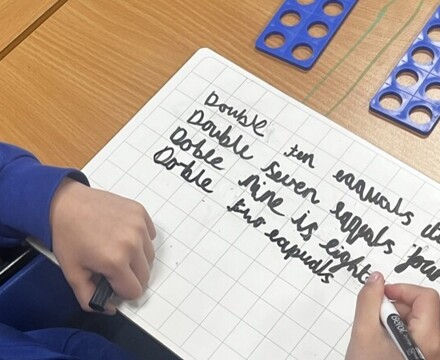 Double ten eaquals
Double seven eqquals four
Doble nine is eight
Doble two eaquals